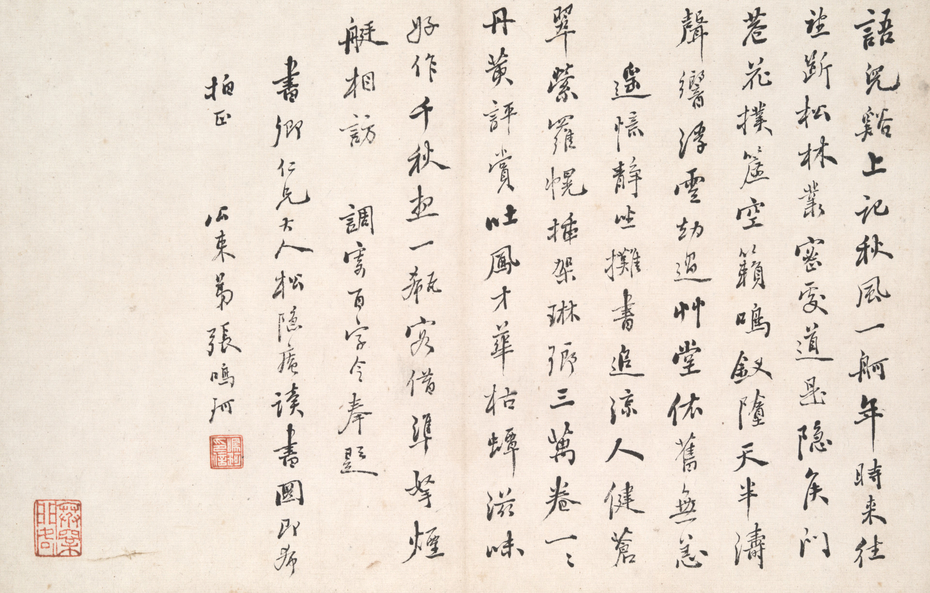 語兒谿上記秋風一舸年時来往
望斷松林叢密處道是隐矦門
巷花撲簾空籟鳴釵墮天半濤
聲響浮雲劫過艸堂依舊無恙
遥憶静坐攤書追涼人健蒼
翠縈羅幌插架琳瑯三萬卷一〻
丹黄評賞吐鳳才華枯蟫滋味
好作千秋想一瓻容借準拏煙
艇相訪 調寄百字令奉題
書卿仁兄大人松隐庵讀書圖即希
拍正 公束弟張鳴珂